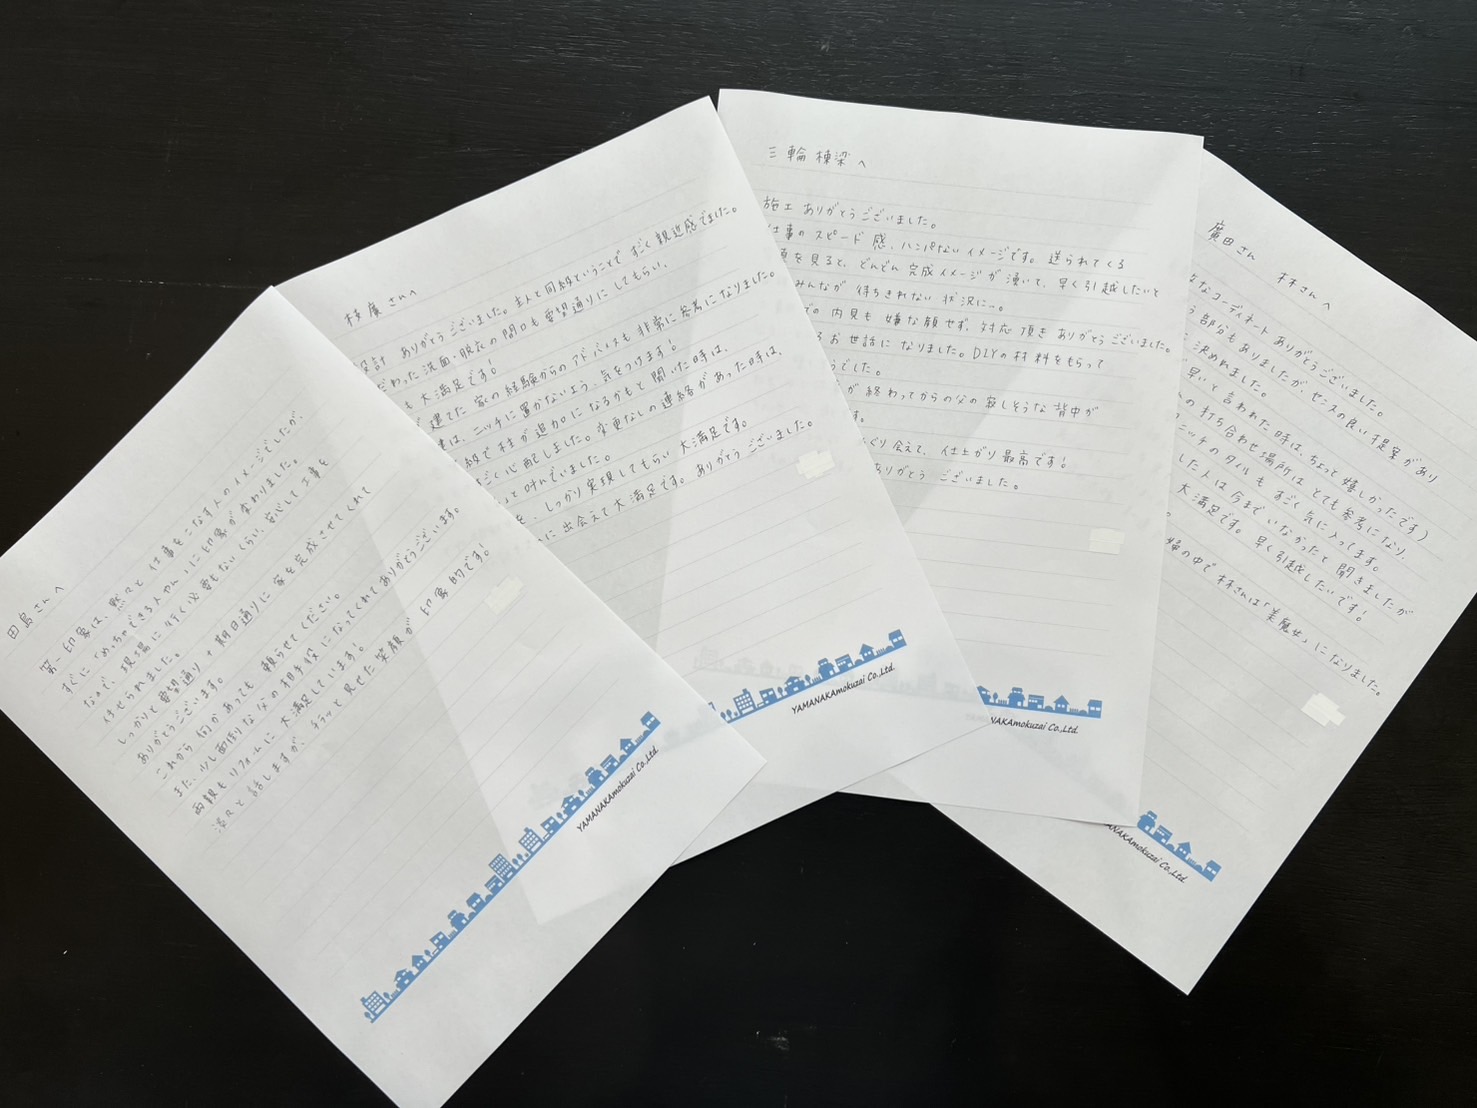 田島さんへ
第一印象は、黙々と仕事をこなす人のイメージでしたが、
すぐに「めっちゃできる人やん」に印象が変わりました。
なので、現場に行く必要もないくらい、安心して工事を
任せられました。
しっかりと要望通り+期日通りに家を完成させてくれて
ありがとうございます。
これから何があっても頼らせてください。
また、少し面倒な父の相手役になってくれてありがとうございます。
両親もリフォームに大満足しています!
淡々と話しますが、チラッと見せた笑顔が印象的です!
YAMANAKAmokuzai Co.,Ltd.
枝廣さんへ
設計ありがとうございました。主人と同級ということですごく親近感でました。
だわった洗面・脱衣の間口も要望通りにしてもらい、
も大満足です!
建てた家の経験からのアドバイスも非常に参考になりました。
は、ニッチに置かないよう、気をつけます!
級で柱が追加になるかもと聞いた時は、
ごく心配しました。変更なしの連絡があった時は、
って叫んでいました。
を、しっかり実現してもらい大満足です。
に出会えて大満足です。ありがとうございました。
YAMANAKAmokuzai Co.,Ltd.
三輪棟梁へ
施工ありがとうございました。
仕事のスピード感、ハンパないイメージです。送られてくる
を見ると、どんどん完成イメージが湧いて、早く引越したいと
みんなが待ちきれない状況に…。
での内見も嫌な顔せず、対応頂きありがとうございました。
お世話になりました。DIYの材料をもらって
うでした。
が終わってからの父の寂しそうな背中が
す。
ぐり会えて、仕上がり最高です!
ありがとうございました。
NAKAmokuzai Co.,Ltd.
廣田さん 林さんへ
なコーディネートありがとうございました。
う部分もありましたが、センスの良い提案があり
決めれました。
早いと言われた時は、ちょっと嬉しかったです)
の打ち合わせ場所はとても参考になり、
ニッチのタイルもすごく気に入ってます。
した人は今までいなかったと聞きましたが
大満足です。早く引越したいです!
婦の中で林さんは「美魔女」になりました。
ANAKAmokuzai Co.,Ltd.